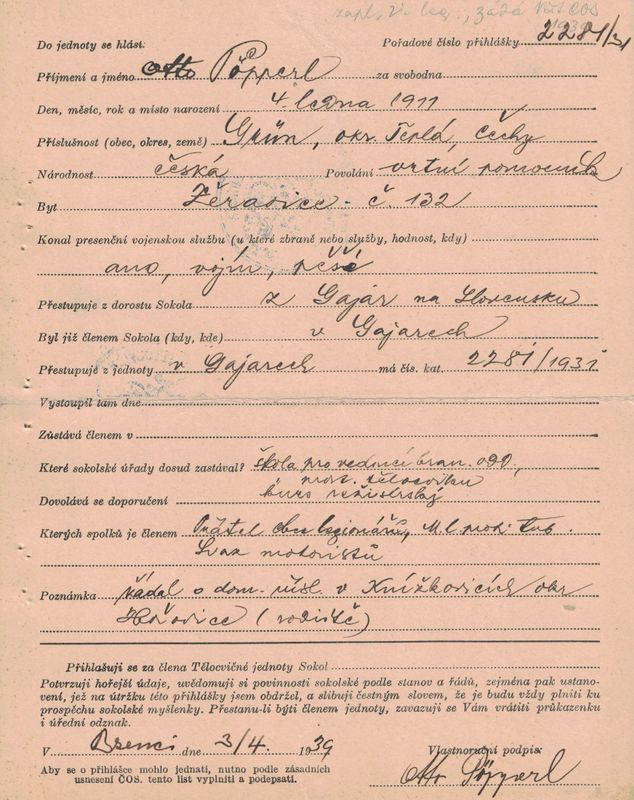 zapl. , žádá
2281/31
Do jednoty se hlásí: Pořadové číslo přihlášky
Příjmení a jméno Otto Pöpperl za svobodna
Den, měsíc, rok a místo narození 4. ledna 1911
Příslušnost (obec, okres, země) Grün, okr. Teplá, Čechy
Národnost česká Povolání vrtní pomocník
Byt Žeravice č. 132
Konal presenční vojenskou službu (u které zbraně nebo služby, hodnost, kdy)
ano, vojín, pěší
Přestupuje z dorostu Sokola z Gajar na Slovensku
Byl již členem Sokola (kdy, kde) v Gajarech
Přestupuje z jednoty v Gajarech má čís. kat. 2281/1931
Vystoupil tam dne
Zůstává členem v
Které sokolské úřady dosud zastával? škola pro vedoucí bran. odd.,
Dovolává se doporučení
Kterých spolků je členem obce legionářů, M. l.
Svaz motoristů
Poznámka žádal o dom. přísl. v okr.
Hořovice (rodiště)
Přihlašuji se za člena Tělocvičné jednoty Sokol
Potvrzuji hořejší údaje, uvědomuji si povinnosti sokolské podle stanov a řádů, zejména pak ustano-
vení, jež na útržku této přihlášky jsem obdržel, a slibuji čestným slovem, že je budu vždy plniti ku
prospěchu sokolské myšlenky. Přestanu-li býti členem jednoty, zavazuji se Vám vrátiti průkazenku
i úřední odznak.
V dne 3/4. 1939 Vlastnoruční podpis:
Aby se o přihlášce mohlo jednati, nutno podle zásadních
usnesení ČOS. tento list vyplniti a podepsati.
Otto Pöpperl